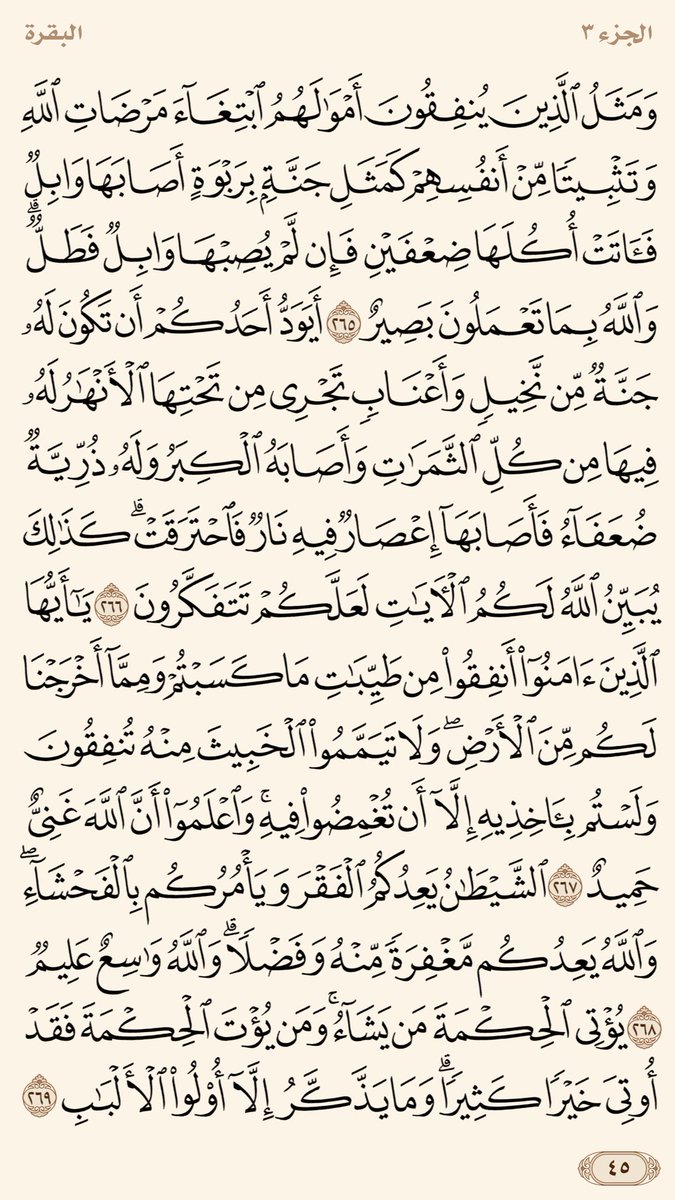 الجزء ٣
البقرة
وَمَثَلُ ٱلَّذِينَ يُنفِقُونَ أَمۡوَٰلَهُمُ ٱبۡتِغَآءَ مَرۡضَاتِ ٱللَّهِ
وَتَثۡبِيتٗا مِّنۡ أَنفُسِهِمۡ كَمَثَلِ جَنَّةِۭ بِرَبۡوَةٍ أَصَابَهَا وَابِلٞ
فَـَٔاتَتۡ أُكُلَهَا ضِعۡفَيۡنِ فَإِن لَّمۡ يُصِبۡهَا وَابِلٞ فَطَلّٞۗ
وَٱللَّهُ بِمَا تَعۡمَلُونَ بَصِيرٌ ٢٦٥ أَيَوَدُّ أَحَدُكُمۡ أَن تَكُونَ لَهُۥ
جَنَّةٞ مِّن نَّخِيلٖ وَأَعۡنَابٖ تَجۡرِي مِن تَحۡتِهَا ٱلۡأَنۡهَٰرُ لَهُۥ
فِيهَا مِن كُلِّ ٱلثَّمَرَٰتِ وَأَصَابَهُ ٱلۡكِبَرُ وَلَهُۥ ذُرِّيَّةٞ
ضُعَفَآءُ فَأَصَابَهَآ إِعۡصَارٞ فِيهِ نَارٞ فَٱحۡتَرَقَتۡۗ كَذَٰلِكَ
يُبَيِّنُ ٱللَّهُ لَكُمُ ٱلۡأٓيَٰتِ لَعَلَّكُمۡ تَتَفَكَّرُونَ ٢٦٦ يَٰٓأَيُّهَا
ٱلَّذِينَ ءَامَنُوٓاْ أَنفِقُواْ مِن طَيِّبَٰتِ مَا كَسَبۡتُمۡ وَمِمَّآ أَخۡرَجۡنَا
لَكُم مِّنَ ٱلۡأَرۡضِۖ وَلَا تَيَمَّمُواْ ٱلۡخَبِيثَ مِنۡهُ تُنفِقُونَ
وَلَسۡتُم بِـَٔاخِذِيهِ إِلَّآ أَن تُغۡمِضُواْ فِيهِۚ وَٱعۡلَمُوٓاْ أَنَّ ٱللَّهَ غَنِيٌّ
حَمِيدٌ ٢٦٧ ٱلشَّيۡطَٰنُ يَعِدُكُمُ ٱلۡفَقۡرَ وَيَأۡمُرُكُم بِٱلۡفَحۡشَآءِۖ
وَٱللَّهُ يَعِدُكُم مَّغۡفِرَةٗ مِّنۡهُ وَفَضۡلٗاۗ وَٱللَّهُ وَٰسِعٌ عَلِيمٞ
٢٦٨ يُؤۡتِي ٱلۡحِكۡمَةَ مَن يَشَآءُۚ وَمَن يُؤۡتَ ٱلۡحِكۡمَةَ فَقَدۡ
أُوتِيَ خَيۡرٗا كَثِيرٗاۗ وَمَا يَذَّكَّرُ إِلَّآ أُوْلُواْ ٱلۡأَلۡبَٰبِ ٢٦٩
٤٥